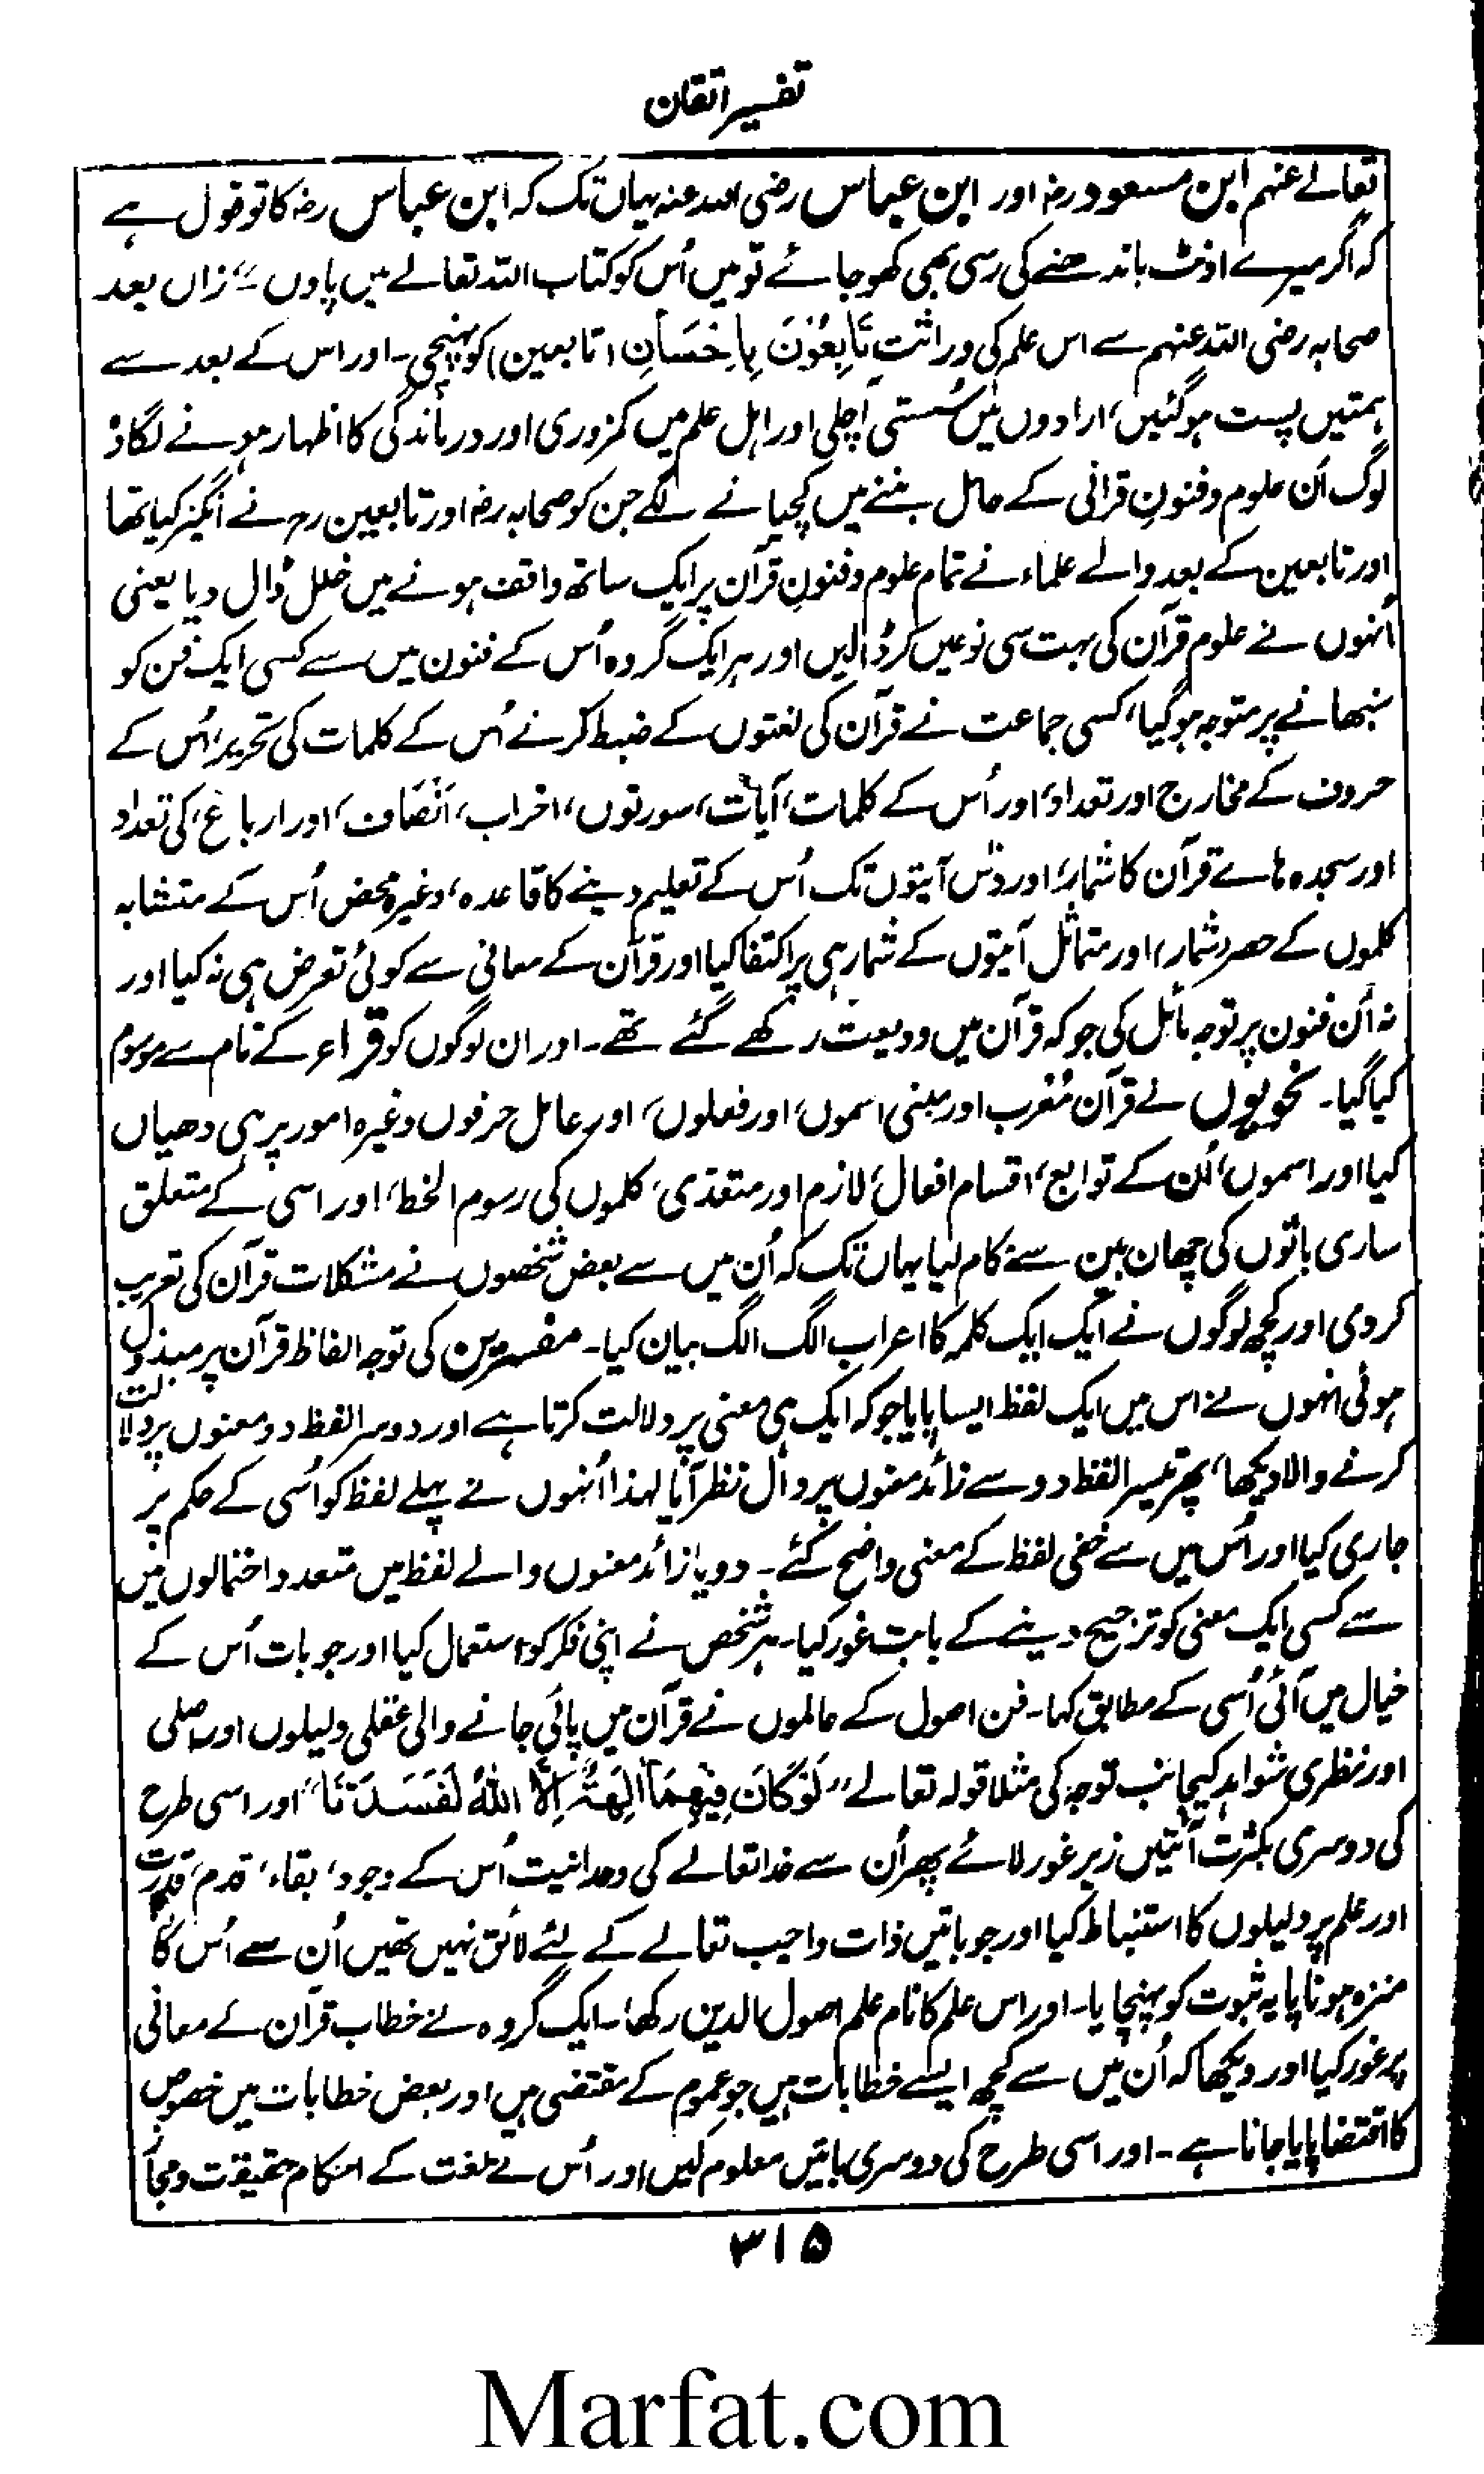 تفسیر اتقان
تعالےٰ عنہم ابن مسعود رضہ اور ابن عباس رضی اللہ عنہ یہاں تک کہ ابن عباس رضہ کا تو قول ہے
کہ اگر میرے اونٹ باندھنے کی رسی بھی کھو جائے تو میں اُس کو کتاب اللہ تعالےٰ میں پاوں" زاں بعد
صحابہ رضی اللہ عنہم سے اس علم کی وراثت تَابِعُوْنَ بِاِحْسَانِ (تابعین) کو پہنچی۔ اور اس کے بعد سے
ہمتیں پست ہو گئیں، ارادوں میں سُستی آچلی اور اہل علم میں کمزوری اور درماندگی کا اظہار ہونے لگا وُہ
لوگ اُن علوم و فنونِ قرآنی کے حامل بننے میں کچیانے لگے جن کو صحابہ رضہ اور تابعین رح نے انگیز کیا تھا
اور تابعین کے بعد والے علماء نے تمام علوم و فنونِ قرآن پر ایک ساتھ واقف ہونے میں خلل ڈال دیا یعنی
اُنہوں نے علوم قرآن کی بہت سی نوعیں کر ڈالیں اور ہر ایک گروہ اُس کے فنون میں سے کسی ایک فن کو
سنبھانے پر متوجہ ہو گیا، کسی جماعت نے قرآن کی لغتوں کے ضبط کرنے اُس کے کلمات کی تحریر، اُس کے
حروف کے مخارج اور تعداد، اور اُس کے کلمات، آیات، سورتوں، احزاب، اَنْصَاف، اور ارباع، کی تعداد
اور سجدہ ہاے قرآن کا شمار، اور دس آیتوں تک اُس کے تعلیم دینے کا قاعدہ، وغیرہ محض اُس کے متشابہ
کلموں کے حصر شمار، اور متماثل آیتوں کے شمار ہی پر اکتفا کیا اور قرآن کے معانی سے کوئی تعرض ہی نہ کیا اور
نہ اُن فنون پر توجہ مائل کی جو کہ قرآن میں ودیعت رکھے گئے تھے۔ اور ان لوگوں کو قراء کے نام سے موسوم
کیا گیا۔ نحویوں نے قرآن مُعْرَب اور مبنی اسموں، اور فعلوں، اور عامل حرفوں وغیرہ امور پر ہی دھیاں
کیا اور اسموں، اُن کے توابع، اقسام افعال، لازم اور متعدّی، کلموں کی رسوم الخط، اور اسی کے متعلق
ساری باتوں کی چھان بین سے کام لیا یہاں تک کہ اُن میں سے بعض شخصوں نے مشکلات قرآن کی تعریب
کر دی اور کچھ لوگوں نے ایک ایک کلمہ کا اعراب الگ الگ بیان کیا۔ مفسرین کی توجہ الفاظ قرآن پر مبذول
ہوئی انہوں نے اس میں ایک لفظ ایسا پایا جو کہ ایک ہی معنی پر دلالت کرتا ہے اور دوسرا لفظ دو معنوں پر دلالت
کرنے والا دیکھا، پھر تیسرا لفظ دو سے زائد معنوں پر دال نظر آیا لہذا اُنہوں نے پہلے لفظ کو اُسی کے حکم پر
جاری کیا اور اُس میں سے خفی لفظ کے معنی واضح کئے۔ دو یا زائد معنوں والے لفظ میں متعدد احتمالوں میں
سے کسی ایک معنی کو ترجیح دینے کے بابت غور کیا۔ ہر شخص نے اپنی فکر کو استعمال کیا اور جو بات اُس کے
خیال میں آئی اُسی کے مطابق کہا۔ فن اصول کے عالموں نے قرآن میں پائی جانے والی عقلی دلیلوں اور اصلی
اور نظری شواہد کیجانب توجہ کی مثلا قولہ تعالےٰ "لَوْكَانَ فِيْهِمَا اٰلِهَةٌ اِلَّا اللّٰهُ لَفَسَدَتَا" اور اسی طرح
کی دوسری بکثرت آئتیں زیر غور لائے پھر اُن سے خدا تعالےٰ کی وحدانیت اُس کے وجود، بقاء، قدم، قدرت
اور علم پر دلیلوں کا استنباط کیا اور جو باتیں ذات واجب تعالےٰ کے لئے لائق نہیں تھیں اُن سے اُس کا
منزہ ہونا پایہ ثبوت کو پہنچایا۔ اور اس علم کا نام علم اصول الدین رکھا، ایک گروہ نے خطاب قرآن کے معانی
پر غور کیا اور دیکھا کہ اُن میں سے کچھ ایسے خطابات ہیں جو عموم کے مقتضی ہیں اور بعض خطابات میں خصوص
کا اقتضا پایا جاتا ہے۔ اور اسی طرح کی دوسری باتیں معلوم کیں اور اُس سے لغت کے احکام حقیقت و مجاز
۳۱۵
Marfat.com